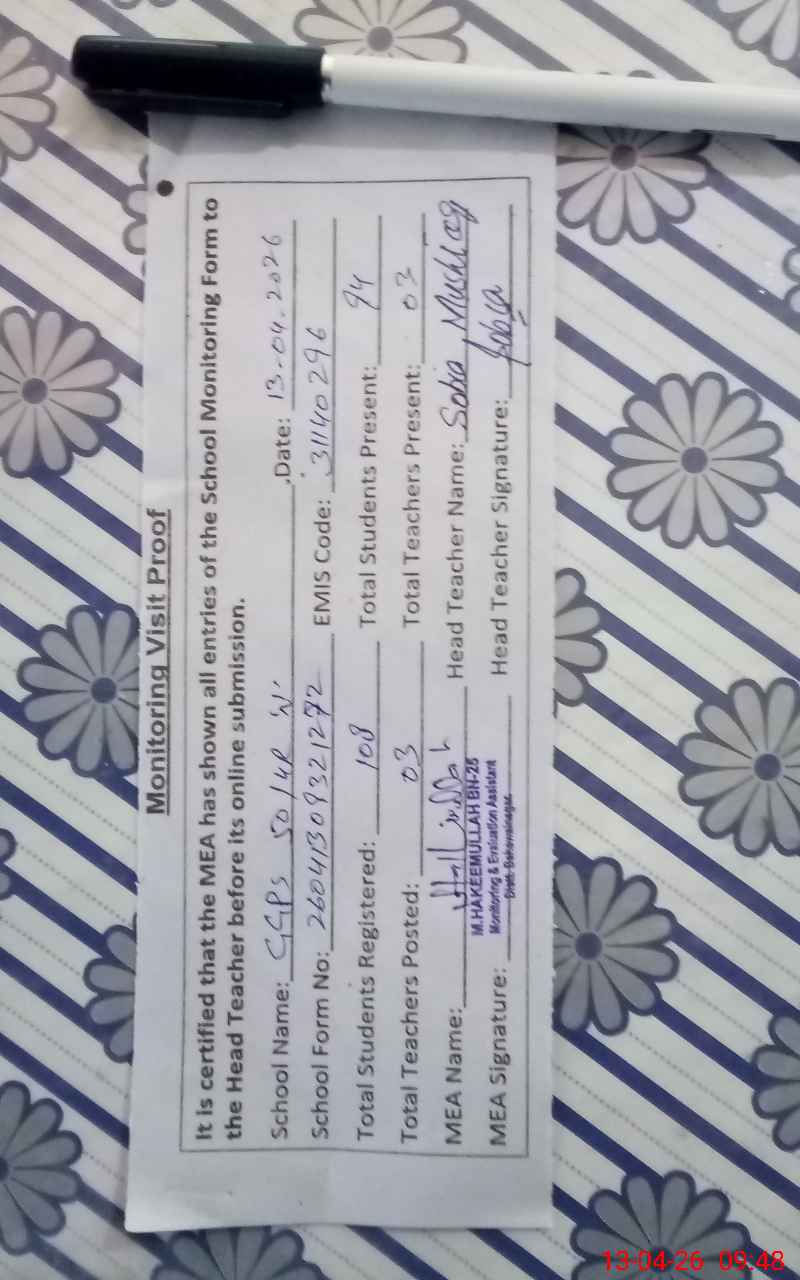 Monitoring Visit Proof
It is certified that the MEA has shown all entries of the School Monitoring Form to
the Head Teacher before its online submission.
School Name: GGPS 50/4R W Date: 13-04-2026
School Form No: 26041309321272 EMIS Code: 31140296
Total Students Registered: 108 Total Students Present: 94
Total Teachers Posted: 03 Total Teachers Present: 03
MEA Name: Head Teacher Name: Sobia Mushtaq
M.HAKEEMULLAH BN-25
Monitoring & Evaluation Assistant
Distt. Bahawalnagar
MEA Signature: Head Teacher Signature:
13-04-26 09:48